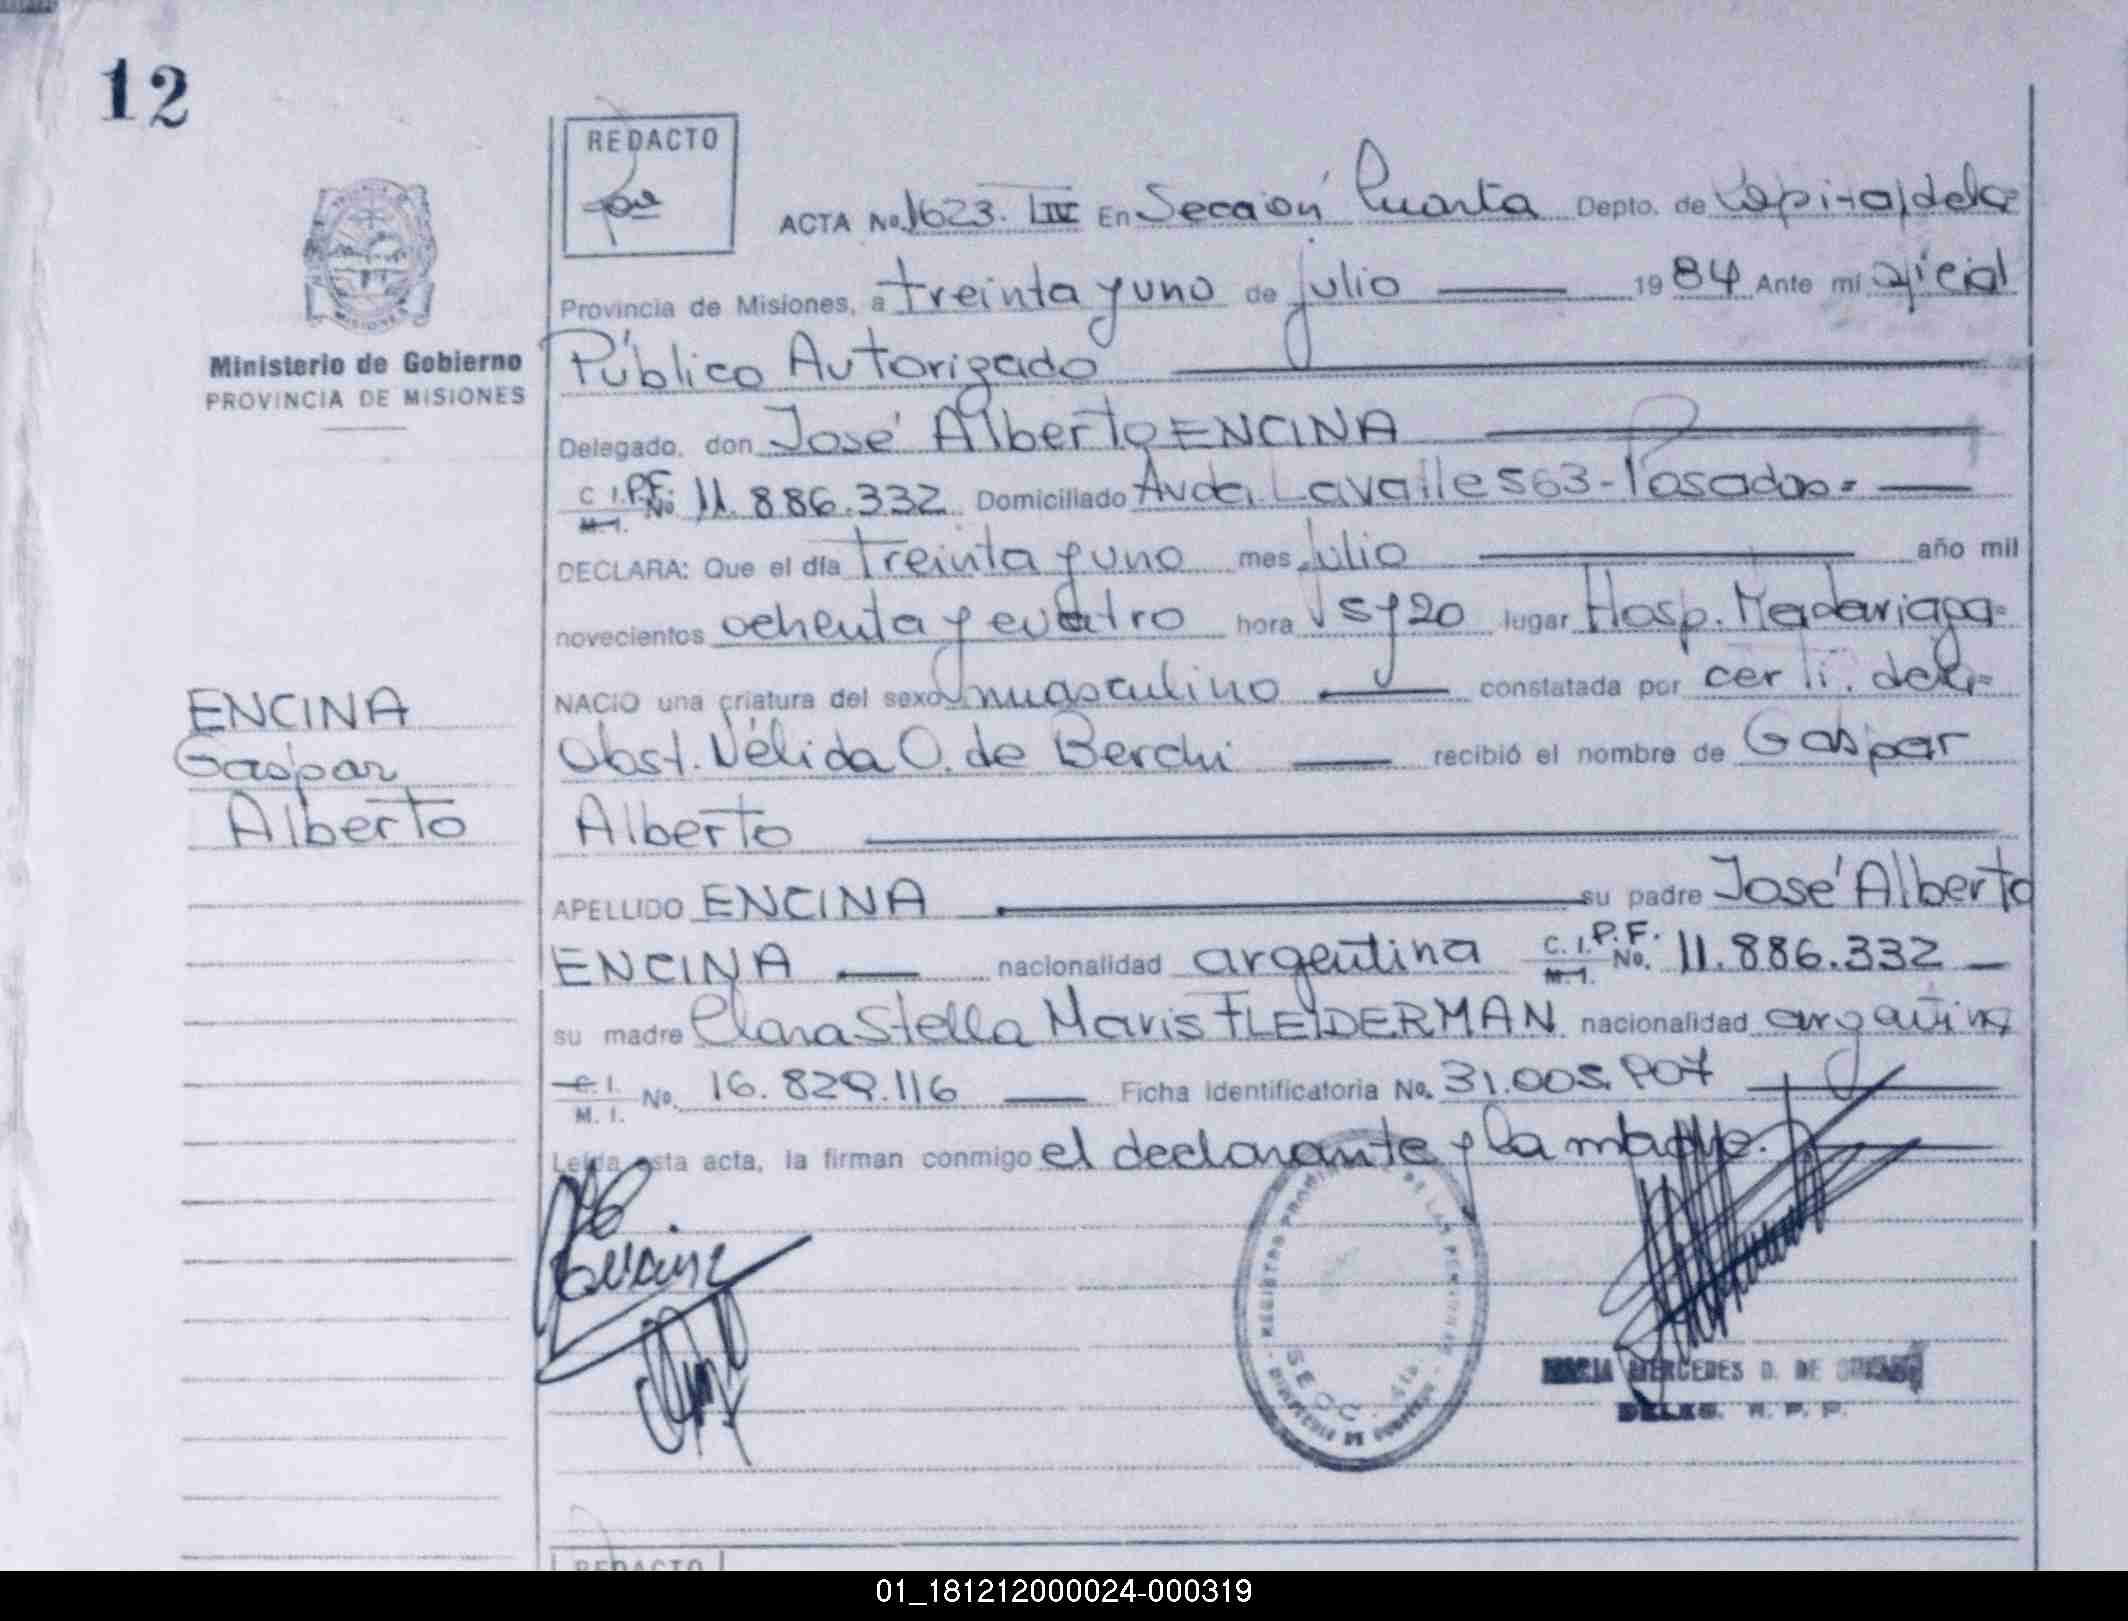 12
REDACTO
ACTA No. 1623. En Sección Cuarta Depto. de Capital de la
Provincia de Misiones, a treinta y uno de julio 1984 Ante mí oficial
Ministerio de Gobierno
PROVINCIA DE MISIONES
Público Autorizado
Delegado, don José Alberto ENCINA
C.I.P.F. M.I. No. 11.886.332 Domiciliado Avda. Lavalle 563 - Posadas. -
DECLARA: Que el día treinta y uno mes julio año mil
novecientos ochenta y cuatro hora 15 y 20 lugar Hosp. Madariaga-
NACIO una criatura del sexo masculino constatada por certi. de la-
Obst. Nélida O. de Berchi recibió el nombre de Gaspar
Alberto
ENCINA
Gaspar
Alberto
APELLIDO ENCINA su padre José Alberto
ENCINA nacionalidad argentina C.I.P.F. M.I. No. 11.886.332
su madre Clara Stella Maris FLEIDERMAN nacionalidad argentina
C.I. M.I. No. 16.829.116 Ficha Identificatoria No. 31.005.907
Leída esta acta, la firman conmigo el declarante y la madre.
REGISTRO DE LAS PERSONAS
SECC. 4ta.
MERCEDES D. DE
DELEG. R. P. P.
REDACTO
01_181212000024-000319